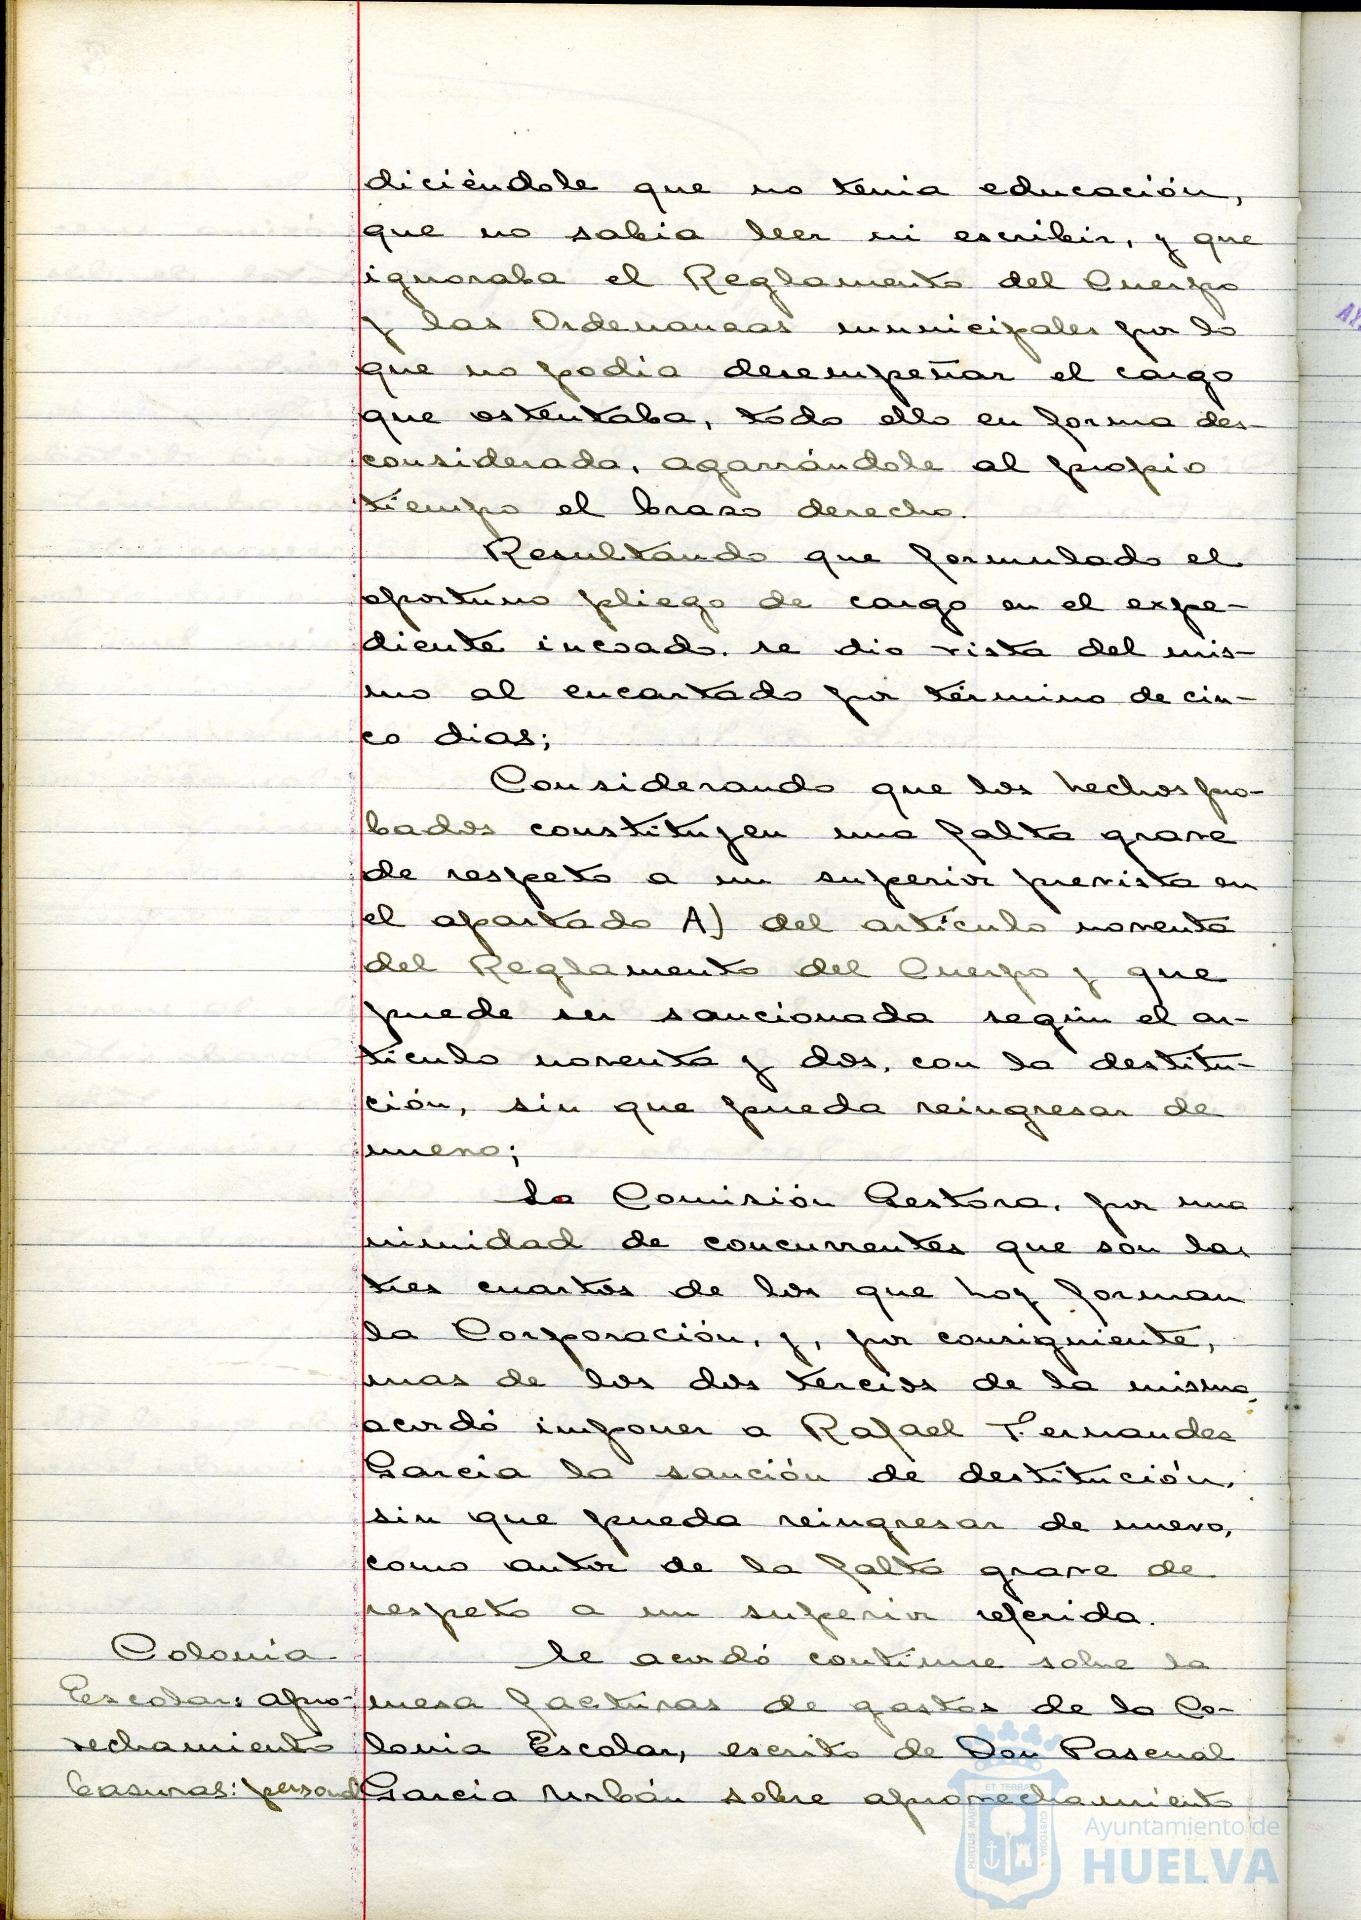 diciéndole que no tenia educación,
que no sabia leer ni escribir, y que
ignoraba el Reglamento del Cuerpo
y las Ordenanzas municipales por lo
que no podia desempeñar el cargo
que ostentaba, todo ello en forma des-
considerada, agarrándole al propio
tiempo el brazo derecho.
Resultando que formulado el
oportuno pliego de cargo en el expe-
diente incoado, se dio vista del mis-
mo al encartado por término de cin-
co dias;
Considerando que los hechos pro-
bados constituyen una falta grave
de respeto a un superior prevista en
el apartado A) del artículo noventa
del Reglamento del Cuerpo y que
puede ser sancionada según el ar-
tículo noventa y dos, con la destitu-
ción, sin que pueda reingresar de
nuevo;
La Comisión Gestora, por una
nimidad de concurrentes que son las
tres cuartos de los que hoy forman
la Corporación, y, por consiguiente,
mas de los dos tercios de la misma,
acordó imponer a Rafael Fernandez
Garcia la sanción de destitución,
sin que pueda reingresar de nuevo,
como autor de la falta grave de
respeto a un superior referida.
Colonia
Escolar: apro-
vechamiento
basuras: personal
Se acordó continue sobre la
mesa facturas de gastos de la Co-
lonia Escolar, escrito de Don Pascual
Garcia Urbán sobre aprovechamiento
ET TERRAE
PORTUS MARIS
CUSTODIA
Ayuntamiento de
HUELVA
AY